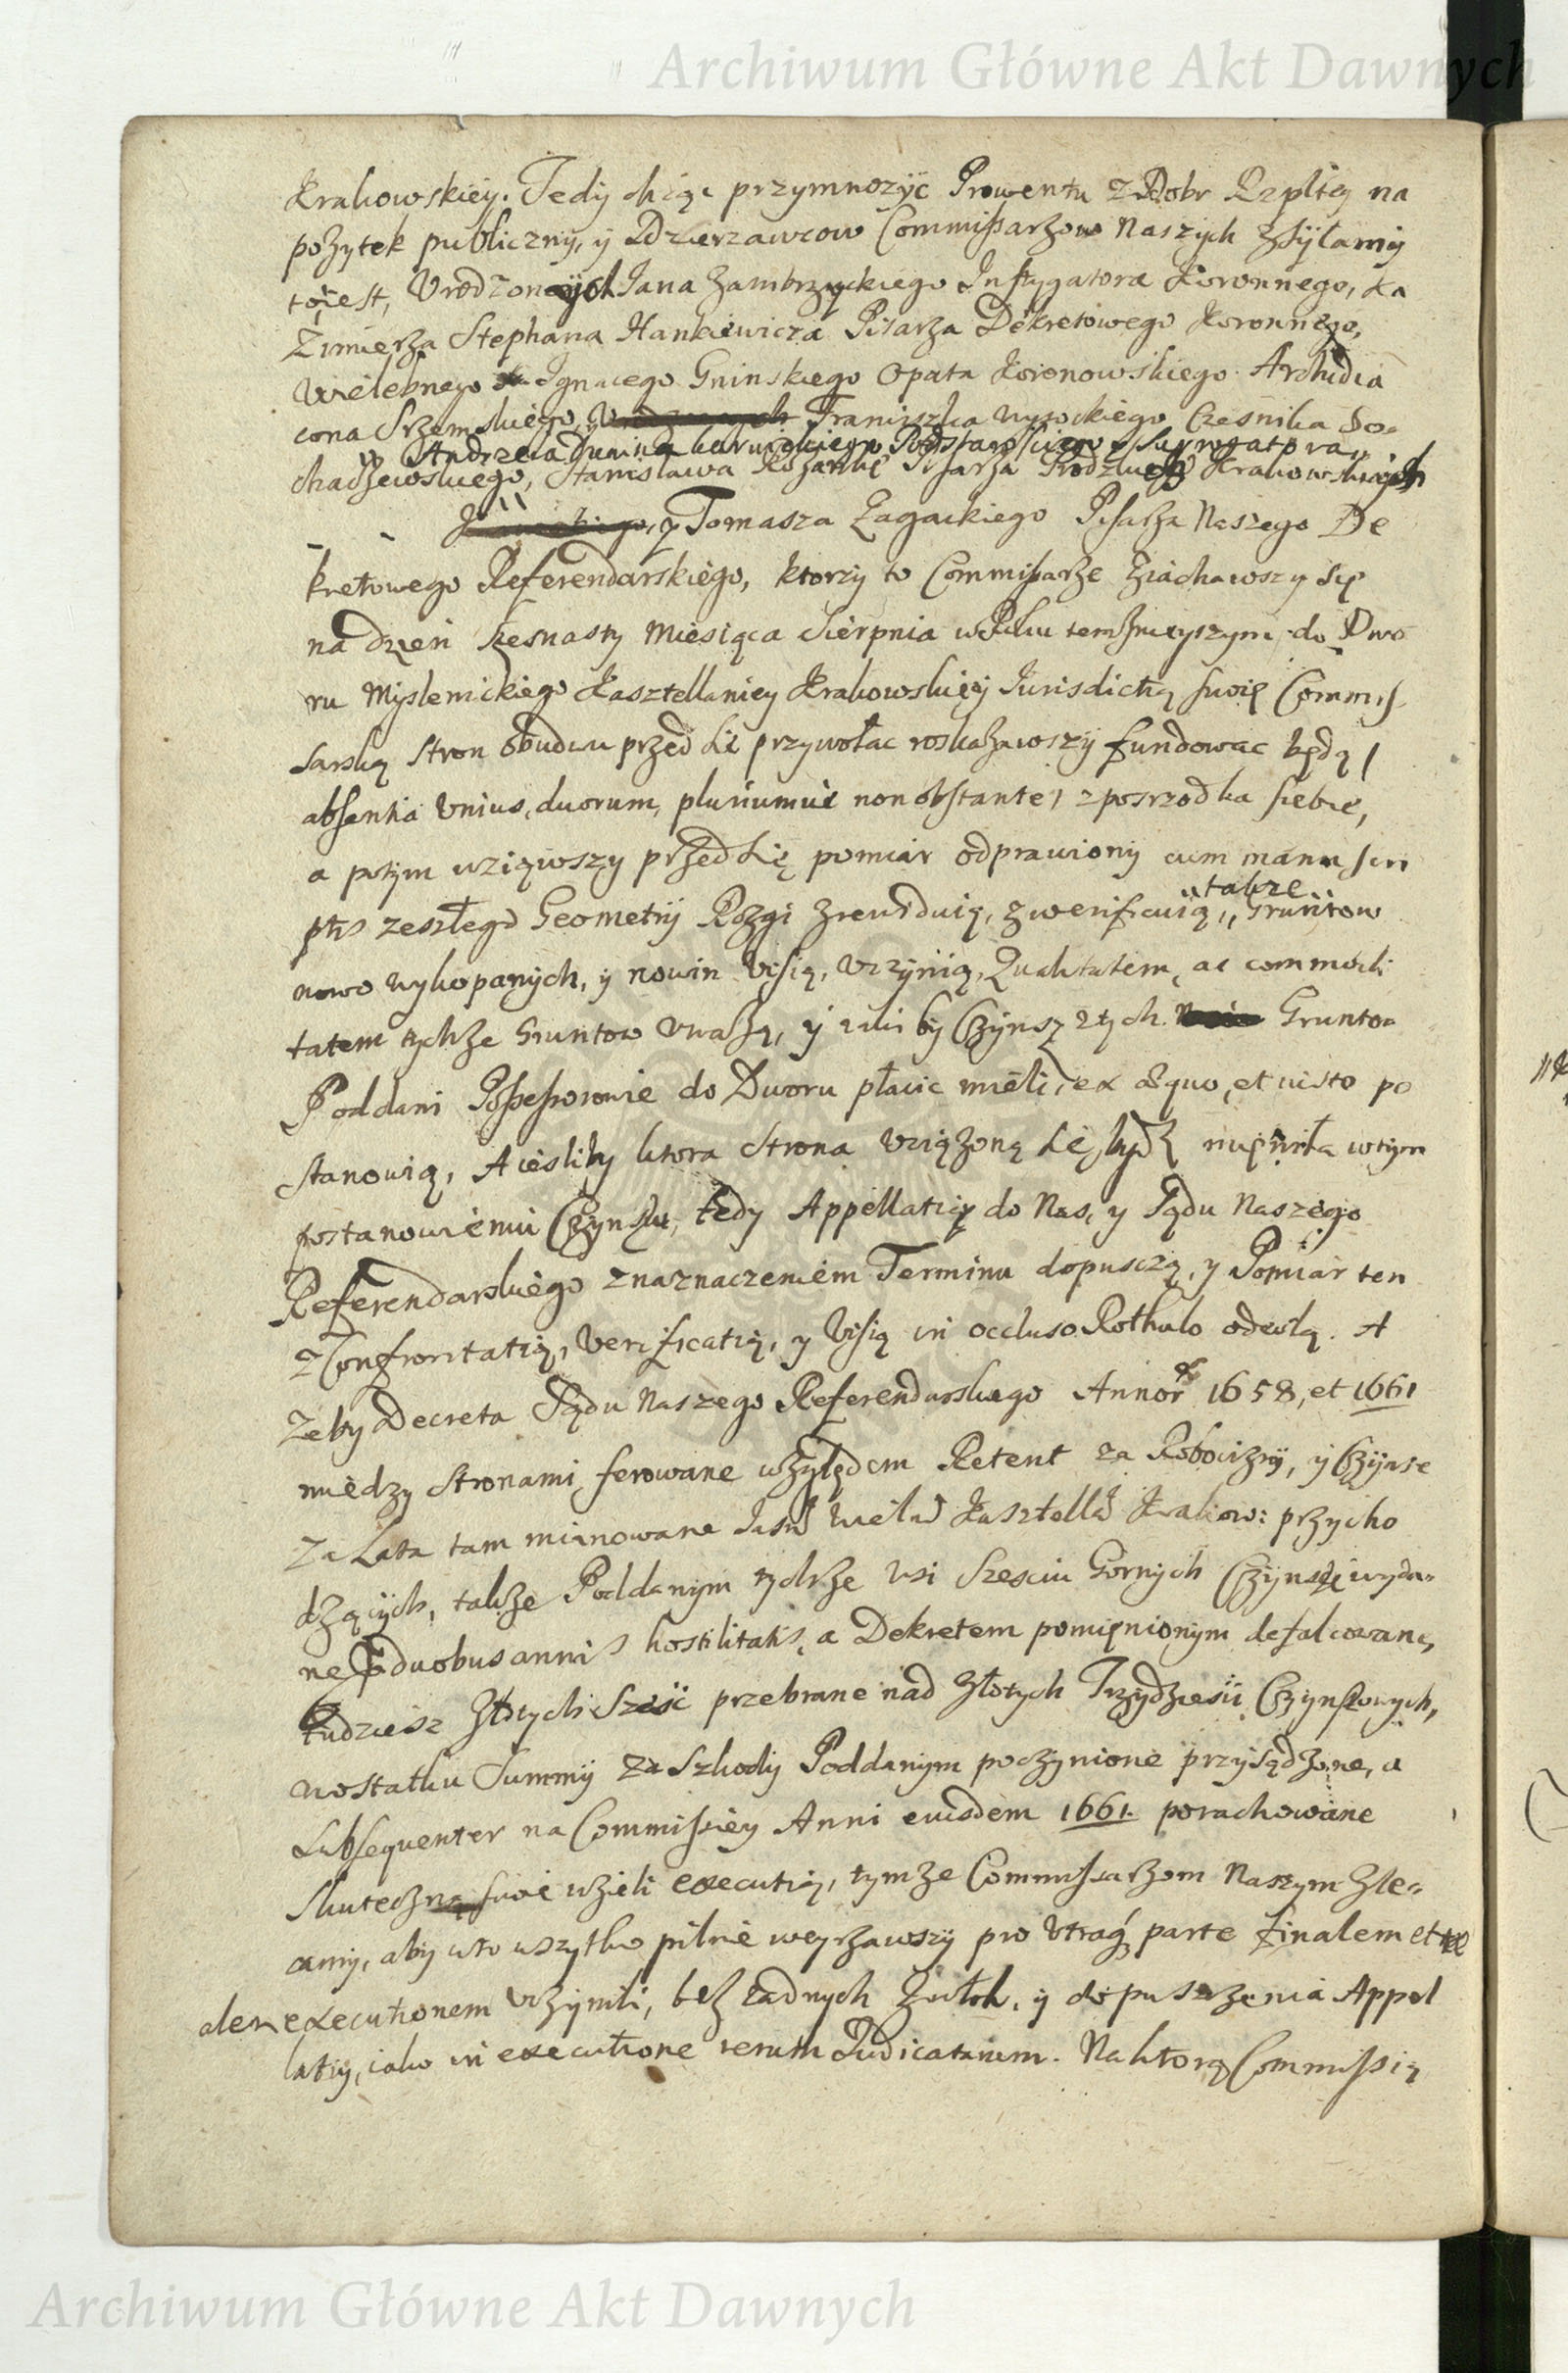 Archiwum Główne Akt Dawnych
Krakowskiey. Tedy chcąc przymnozyć Prowentu z Dobr Rzpltey na
pozytek publiczny, y Dzierzawcow Commissarzow Naszych zsyłamy
to iest, Vrodzonych Jana Zambrzyckiego Instygatora Koronnego, Ka
zimierza Stephana Hankiewicza Pisarza Dekretowego Koronnego,
Wielebnego Ignacego Gninskiego Opata Koronowskiego Archidia
cona Srzemskiego, Franciszka Wysockiego Czesnika So-
Andrzeia Dunina Karwickiego Podstarosciego y Surrogatora
chaczewskiego, Stanisława Rozanki Pisarza Grodzkich Krakowskich
y Tomasza Zagackiego Pisarza Naszego De
kretowego Referendarskiego, ktorzy to Commissarze ziachawszy się
na dzień szesnasty Miesiąca Sierpnia w Roku temznieyszym do Dwo
ru Myslenickiego Kasztellaniey Krakowskiey Iurisdictią swoię Commis
sarską Stron obudwu przed się przywołac roskazawszy fundowac będą /
absentia vnius, duorum, pluriumve non obstante / z posrzodka siebie,
a potym wziąwszy przed się pomiar odprawiony cum manuscri
ptis zeszłego Geometry Rozgi zrewiduią, zwerifikuią, Gruntow
takze
nowo wykopanych, y nowin visią, vczynią, Qualitatem, ac commodi
tatem tychze Gruntow vważą, y iaki by Czynsz z tych Gruntow
Poddani Possessorowie do Dworu płacic mieli, ex aequo, et iusto po
stanowią, A iesliby ktora Strona vciążoną się bydz mięniła w tym
postanowieniu Czynszu, tedy Appellatią do Nas, y Sądu Naszego
Referendarskiego z naznaczeniem Terminu dopusczą, y Pomiar ten
z Confrontatią, Verificatią, y Visią in occluso Rothulo odeslą. A
zeby Decreta Sądu Naszego Referendarskiego Annor 1658, et 1661
między Stronami ferowane względem Retent za Robocizny, y Czynsze
za Lata tam mianowane Kasztella Krakow: przycho
dzących, takze Poddanym tychze wsi Szesciu Gornych Czynsze wyda-
ne duobus annis hostilitatis, a Dekretem pomięnionym defalcowane,
tudziesz Złotych Szesc przebrane nad Złotych Trzydziesci Czynszowych,
w ostatku Summy za Szkody Poddanym poczynione przysądzone, a
subsequenter na Commissiey Anni eiusdem 1661 porachowane
Skuteczną swoię wzieli executią, tymze Commissarzom Naszym zle-
camy, aby w to wszytko pilnie weyrzawszy pro vtraq parte finalem et re
alem executionem vczynili, bez zadnych zwłok, y dopuszczenia Appel
latiy, iako in executione rerum Iudicatarum. Na ktorą Commissią
Archiwum Główne Akt Dawnych